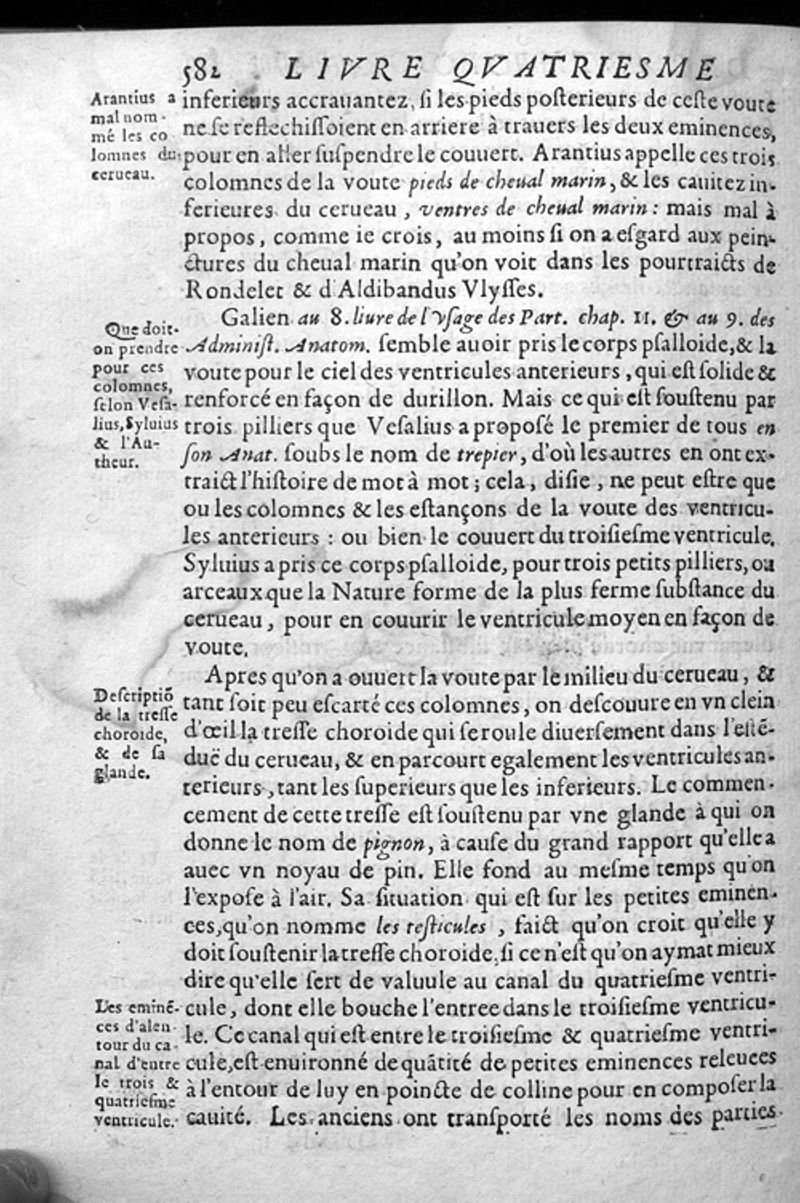 582 LIVRE QVATRIESME
Arantius a
mal nom-
mé les co
lomnes du
cerueau.
inferieurs accrauantez, ſi les pieds poſterieurs de ceſte voute
ne ſe reflechiſſoient en arriere à trauers les deux eminences,
pour en aller ſuſpendre le couuert. Arantius appelle ces trois
colomnes de la voute pieds de cheual marin, & les cauitez in-
ferieures du cerueau, ventres de cheual marin: mais mal à
propos, comme ie crois, au moins ſi on a eſgard aux pein-
ctures du cheual marin qu'on voit dans les pourtraicts de
Rondelet & d'Aldibandus Vlyſſes.
Que doit-
on prendre
pour ces
colomnes,
ſelon Veſa-
lius, Syluius
& l'Au-
theur.
Galien au 8. liure de l'vſage des Part. chap. 11. & au 9. des
Adminiſt. Anatom. ſemble auoir pris le corps pſalloide, & la
voute pour le ciel des ventricules anterieurs, qui eſt ſolide &
renforcé en façon de durillon. Mais ce qui eſt ſouſtenu par
trois pilliers que Veſalius a propoſé le premier de tous en
ſon Anat. ſoubs le nom de trepier, d'où les autres en ont ex-
traict l'hiſtoire de mot à mot; cela, diſie, ne peut eſtre que
ou les colomnes & les eſtançons de la voute des ventricu-
les anterieurs: ou bien le couuert du troiſieſme ventricule.
Syluius a pris ce corps pſalloide, pour trois petits pilliers, ou
arceaux que la Nature forme de la plus ferme ſubſtance du
cerueau, pour en couurir le ventricule moyen en façon de
voute.
Deſcriptiõ
de la treſſe
choroide,
& de ſa
glande.
Apres qu'on a ouuert la voute par le milieu du cerueau, &
tant ſoit peu eſcarté ces colomnes, on deſcouure en vn clein
d'œil la treſſe choroide qui ſe roule diuerſement dans l'eſtẽ-
duë du cerueau, & en parcourt egalement les ventricules an-
terieurs, tant les ſuperieurs que les inferieurs. Le commen-
cement de cette treſſe eſt ſouſtenu par vne glande à qui on
donne le nom de pignon, à cauſe du grand rapport qu'elle a
auec vn noyau de pin. Elle fond au meſme temps qu'on
l'expoſe à l'air. Sa ſituation qui eſt ſur les petites eminen-
ces, qu'on nomme les teſticules, faict qu'on croit qu'elle y
doit ſouſtenir la treſſe choroide, ſi ce n'eſt qu'on aymat mieux
dire qu'elle ſert de valuule au canal du quatrieſme ventri-
Les eminẽ-
ces d'alen-
tour du ca-
nal d'entre
le trois &
quatrieſme
ventricule.
cule, dont elle bouche l'entree dans le troiſieſme ventricu-
le. Ce canal qui eſt entre le troiſieſme & quatrieſme ventri-
cule, eſt enuironné de quãtité de petites eminences releuees
à l'entour de luy en poincte de colline pour en compoſer la
cauité. Les anciens ont tranſporté les noms des parties